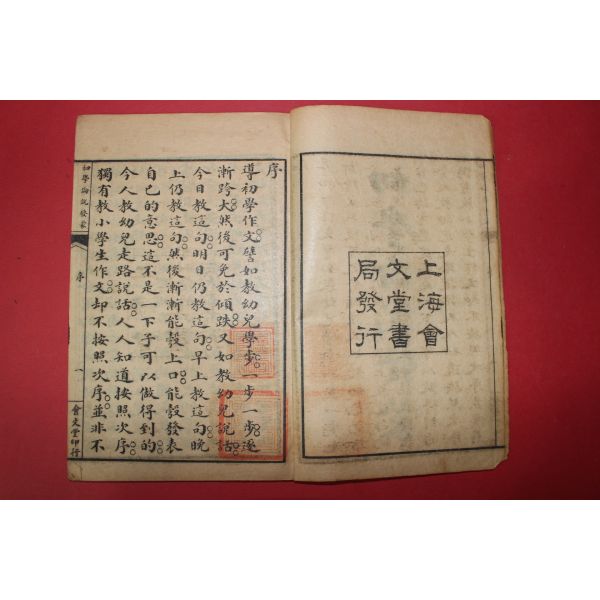 上海會
文堂書
局發行
序
導初學作文譬如教幼兒學步一步一步逐
漸跨大然後可免於傾跌又如教幼兒說話
今日教這句明日仍教這句早上教這句晚
上仍教這句然後漸漸能彀上口能彀發表
自己的意思這不是一下子可以做得到的
今人教幼兒走路說話人人知道按照次序
獨有教小學生作文却不按照次序並非不
初學論說發蒙
序
一
會文堂印行